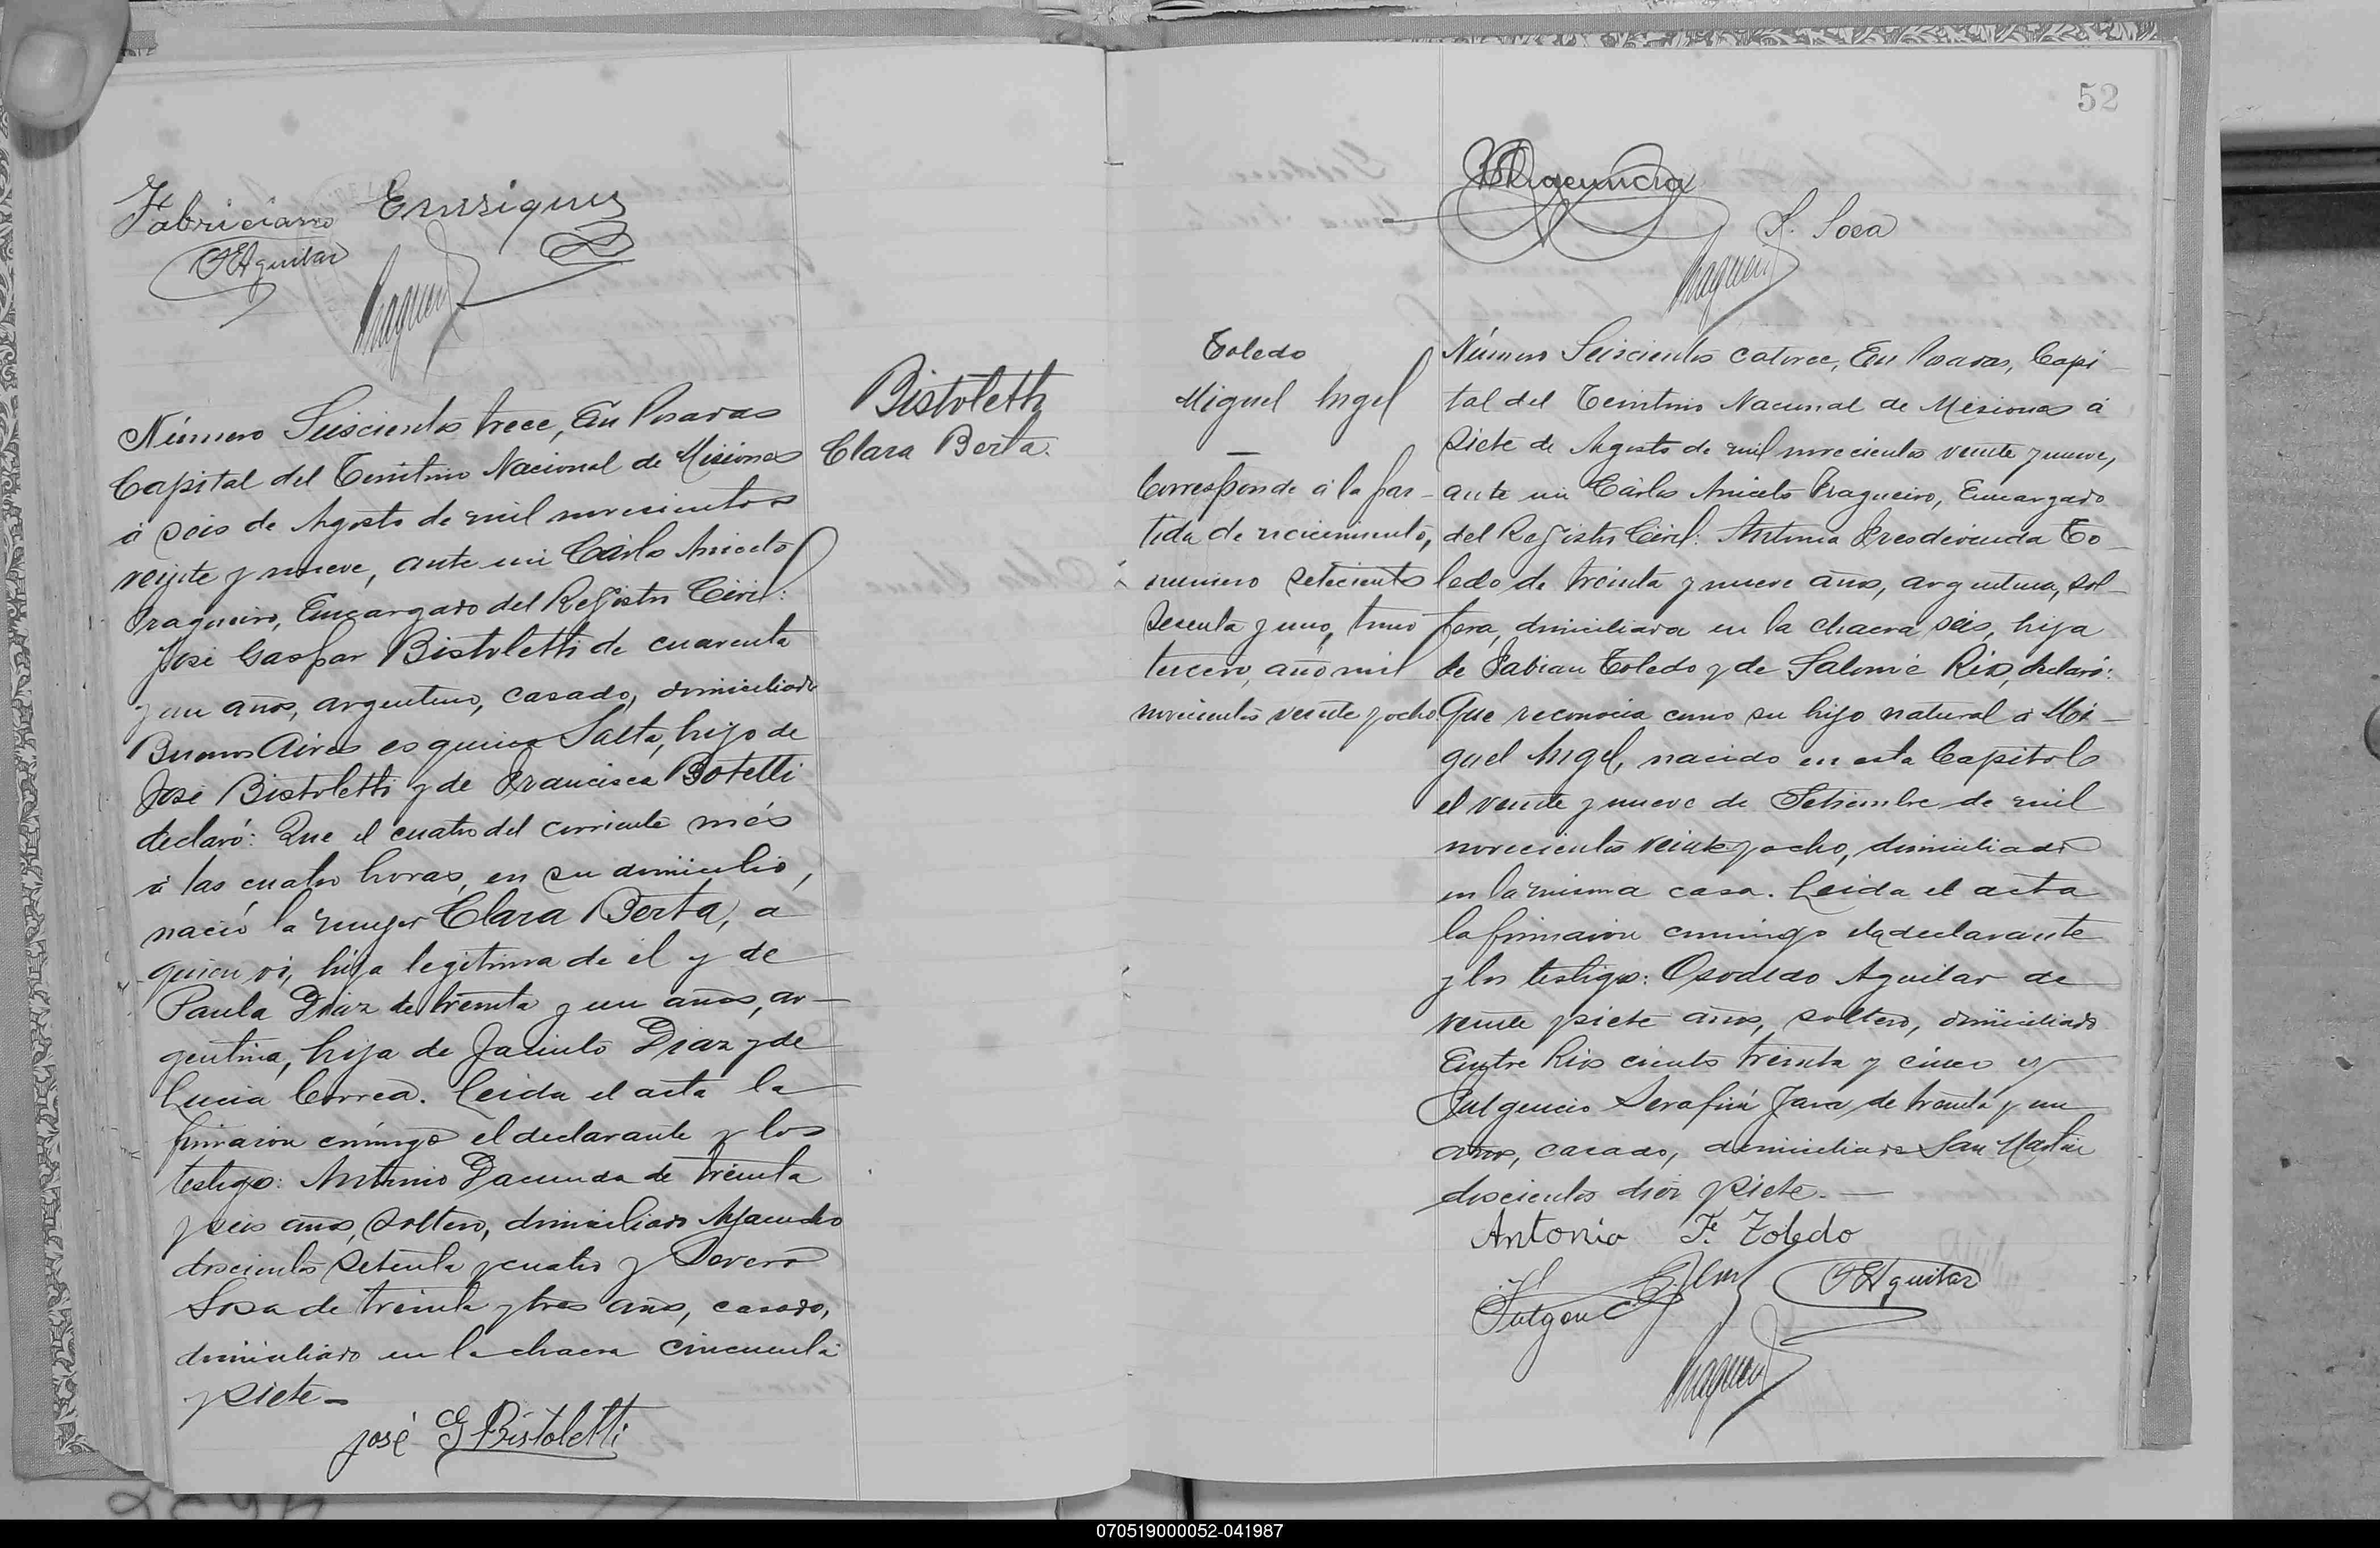 Fabriciano Enrriquez
OEAguilar
Número Seiscientos trece, En Posadas
Capital del Territorio Nacional de Misiones
á seis de Agosto de mil novecientos
veinte y nueve, ante mi Cárlos Aniceto
Fragueiro, Encargado del Registro Civil:
José Gaspar Bistoletti de cuarenta
y un años, argentino, casado, domiciliado
Buenos Aires esquina Salta, hijo de
José Bistoletti y de Francisca Botelli
declaró: Que el cuatro del corriente més
á las cuatro horas, en su domicilio,
nació la mujer Clara Berta, a
quien vi, hija legitima de él y de
Paula Diaz de treinta y un años, ar-
gentina, hija de Jacinto Diaz y de
Lucia Correa. Leida el acta la
firmaron conmigo el declarante y los
testigos: Antonio Dacunda de treinta
y seis años, soltero, domiciliado Ayacucho
doscientos setenta y cuatro y Severo
Sosa de treinta y tres años, casado,
domiciliado en la chacra cincuenta
y siete-
José G Bistoletti
Bistoletti
Clara Berta.
52
S. Sosa
Toledo
Miguel Angel
Corresponde á la par-
tida de nacimiento,
número setecientos
sesenta y uno, tomo
tercero, año mil
novecientos veinte y ocho
Número Seiscientos catorce, En Posadas, Capi-
tal del Territorio Nacional de Misiones á
siete de Agosto de mil novecientos veinte y nueve,
ante mi Cárlos Aniceto Fragueiro, Encargado
del Registro Civil: Antonia Fresdevinda To-
ledo de treinta y nueve años, argentina, sol-
tera, domiciliada en la chacra seis, hija
de Fabian Toledo y de Salomé Rios, declaró:
Que reconocia como su hijo natural á Mi-
guel Angel, nacido en esta Capital
el veinte y nueve de Setiembre de mil
novecientos veinte y ocho, domiciliado
en la misma casa. Leida el acta
la firmaron conmigo la declarante
y los testigos: Osvaldo Aguilar de
veinte y siete años, soltero, domiciliado
Entre Rios ciento treinta y cinco y
Fulgencio Serafin Jara de treinta y un
años, casado, domiciliado San Martin
doscientos diez y siete.-
Antonia F. Toledo
OEAguilar
070519000052-041987